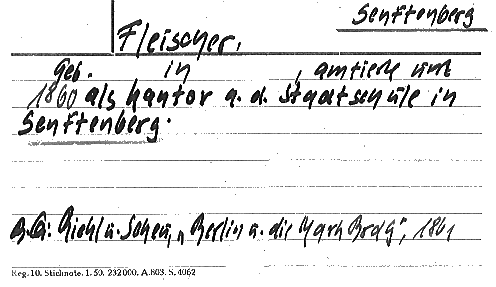 Senftenberg
Fleischer,
Geb. in , amtierte um
1860 als Kantor a. d. Stadtschule in
Senftenberg.
Riehl u. Scheu, „Berlin u. die Mark Brdg", 1861
Reg. 10. Stichnote. 1. 50. 232000. A. 803. S. 4062